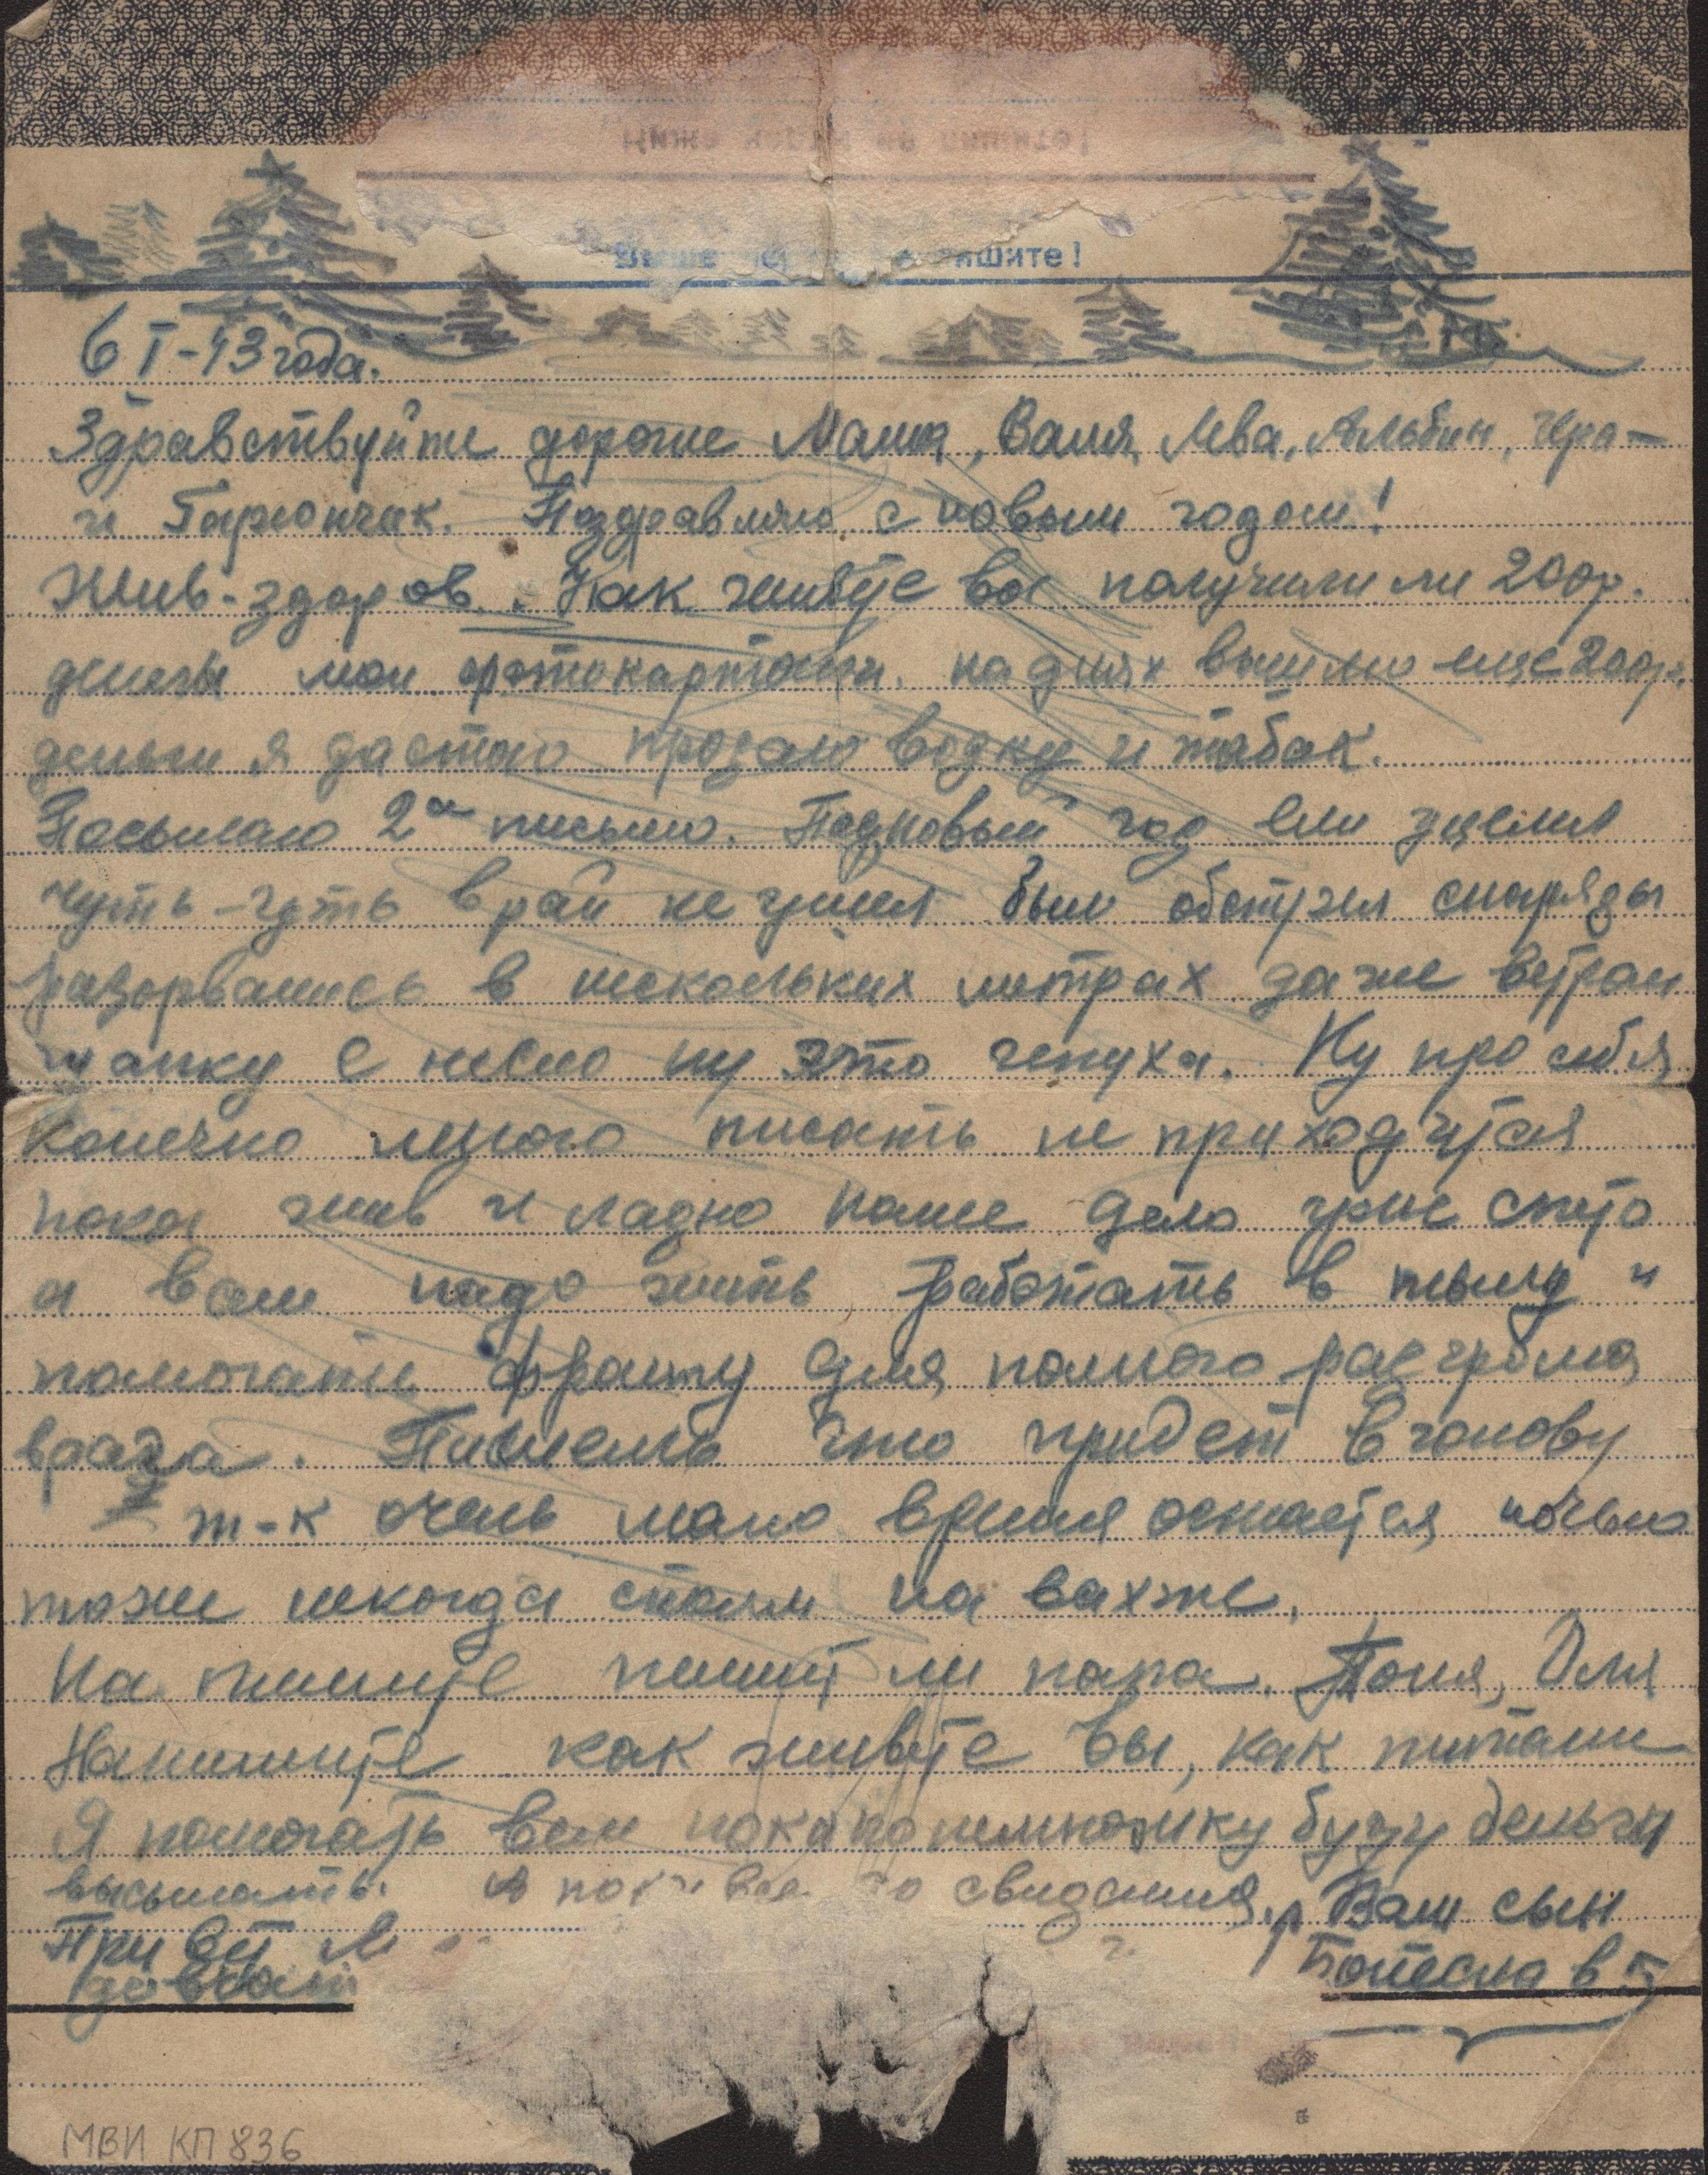 Выше черты не пишите!
6 I-43 года.
Здравствуйте дорогие Мама, Валя, Лева, Альбин, Ира-
и Поздравляю с новым годом!
Жив-здоров. Как живете вы получили ли 200р.
деньги мои фотокарточки. на днях вышлю еще 200р.
деньги я достаю продаю водку и табак.
Посылаю 2ое письмо. Под новый год еле уцелел
чуть-чуть в рай не ушел был обстрел снаряды
разорвались в нескольких метрах даже ветром
шапку снесло ну это чепуха. Ну про себя
конечно много писать не приходится
пока жив и ладно наше дело уже
а вам надо жить работать в тылу и
помогать фронту для полного разгрома
врага. Пишешь что придет в голову
т-к очень мало время остается, ночью
тоже некогда стоим на вахте.
На пишите пишит ли папа. Тоня, Оля
Напишите как живете вы, как питание
Я помогать вам пока понемножику буду деньги
высылать. А пока все до свидания. Ваш сын
Привет
МВИ КП 836